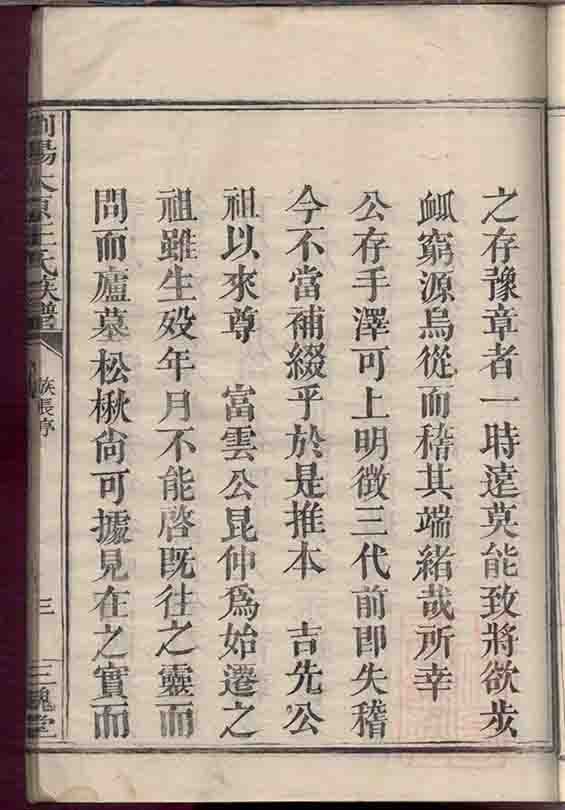 之存豫章者一時遠莫能致將欲步
瓢窮源烏從而稽其端緒哉所幸
公存手澤可上明徵三代前即失稽
今不當補綴乎於是推本　吉先公
祖以來尊　富雲公昆仲爲始遷之
祖雖生殁年月不能啓既往之靈而
問而廬墓松楸尙可據見在之實而
瀏陽太原王氏族譜
族長序
三
三槐堂